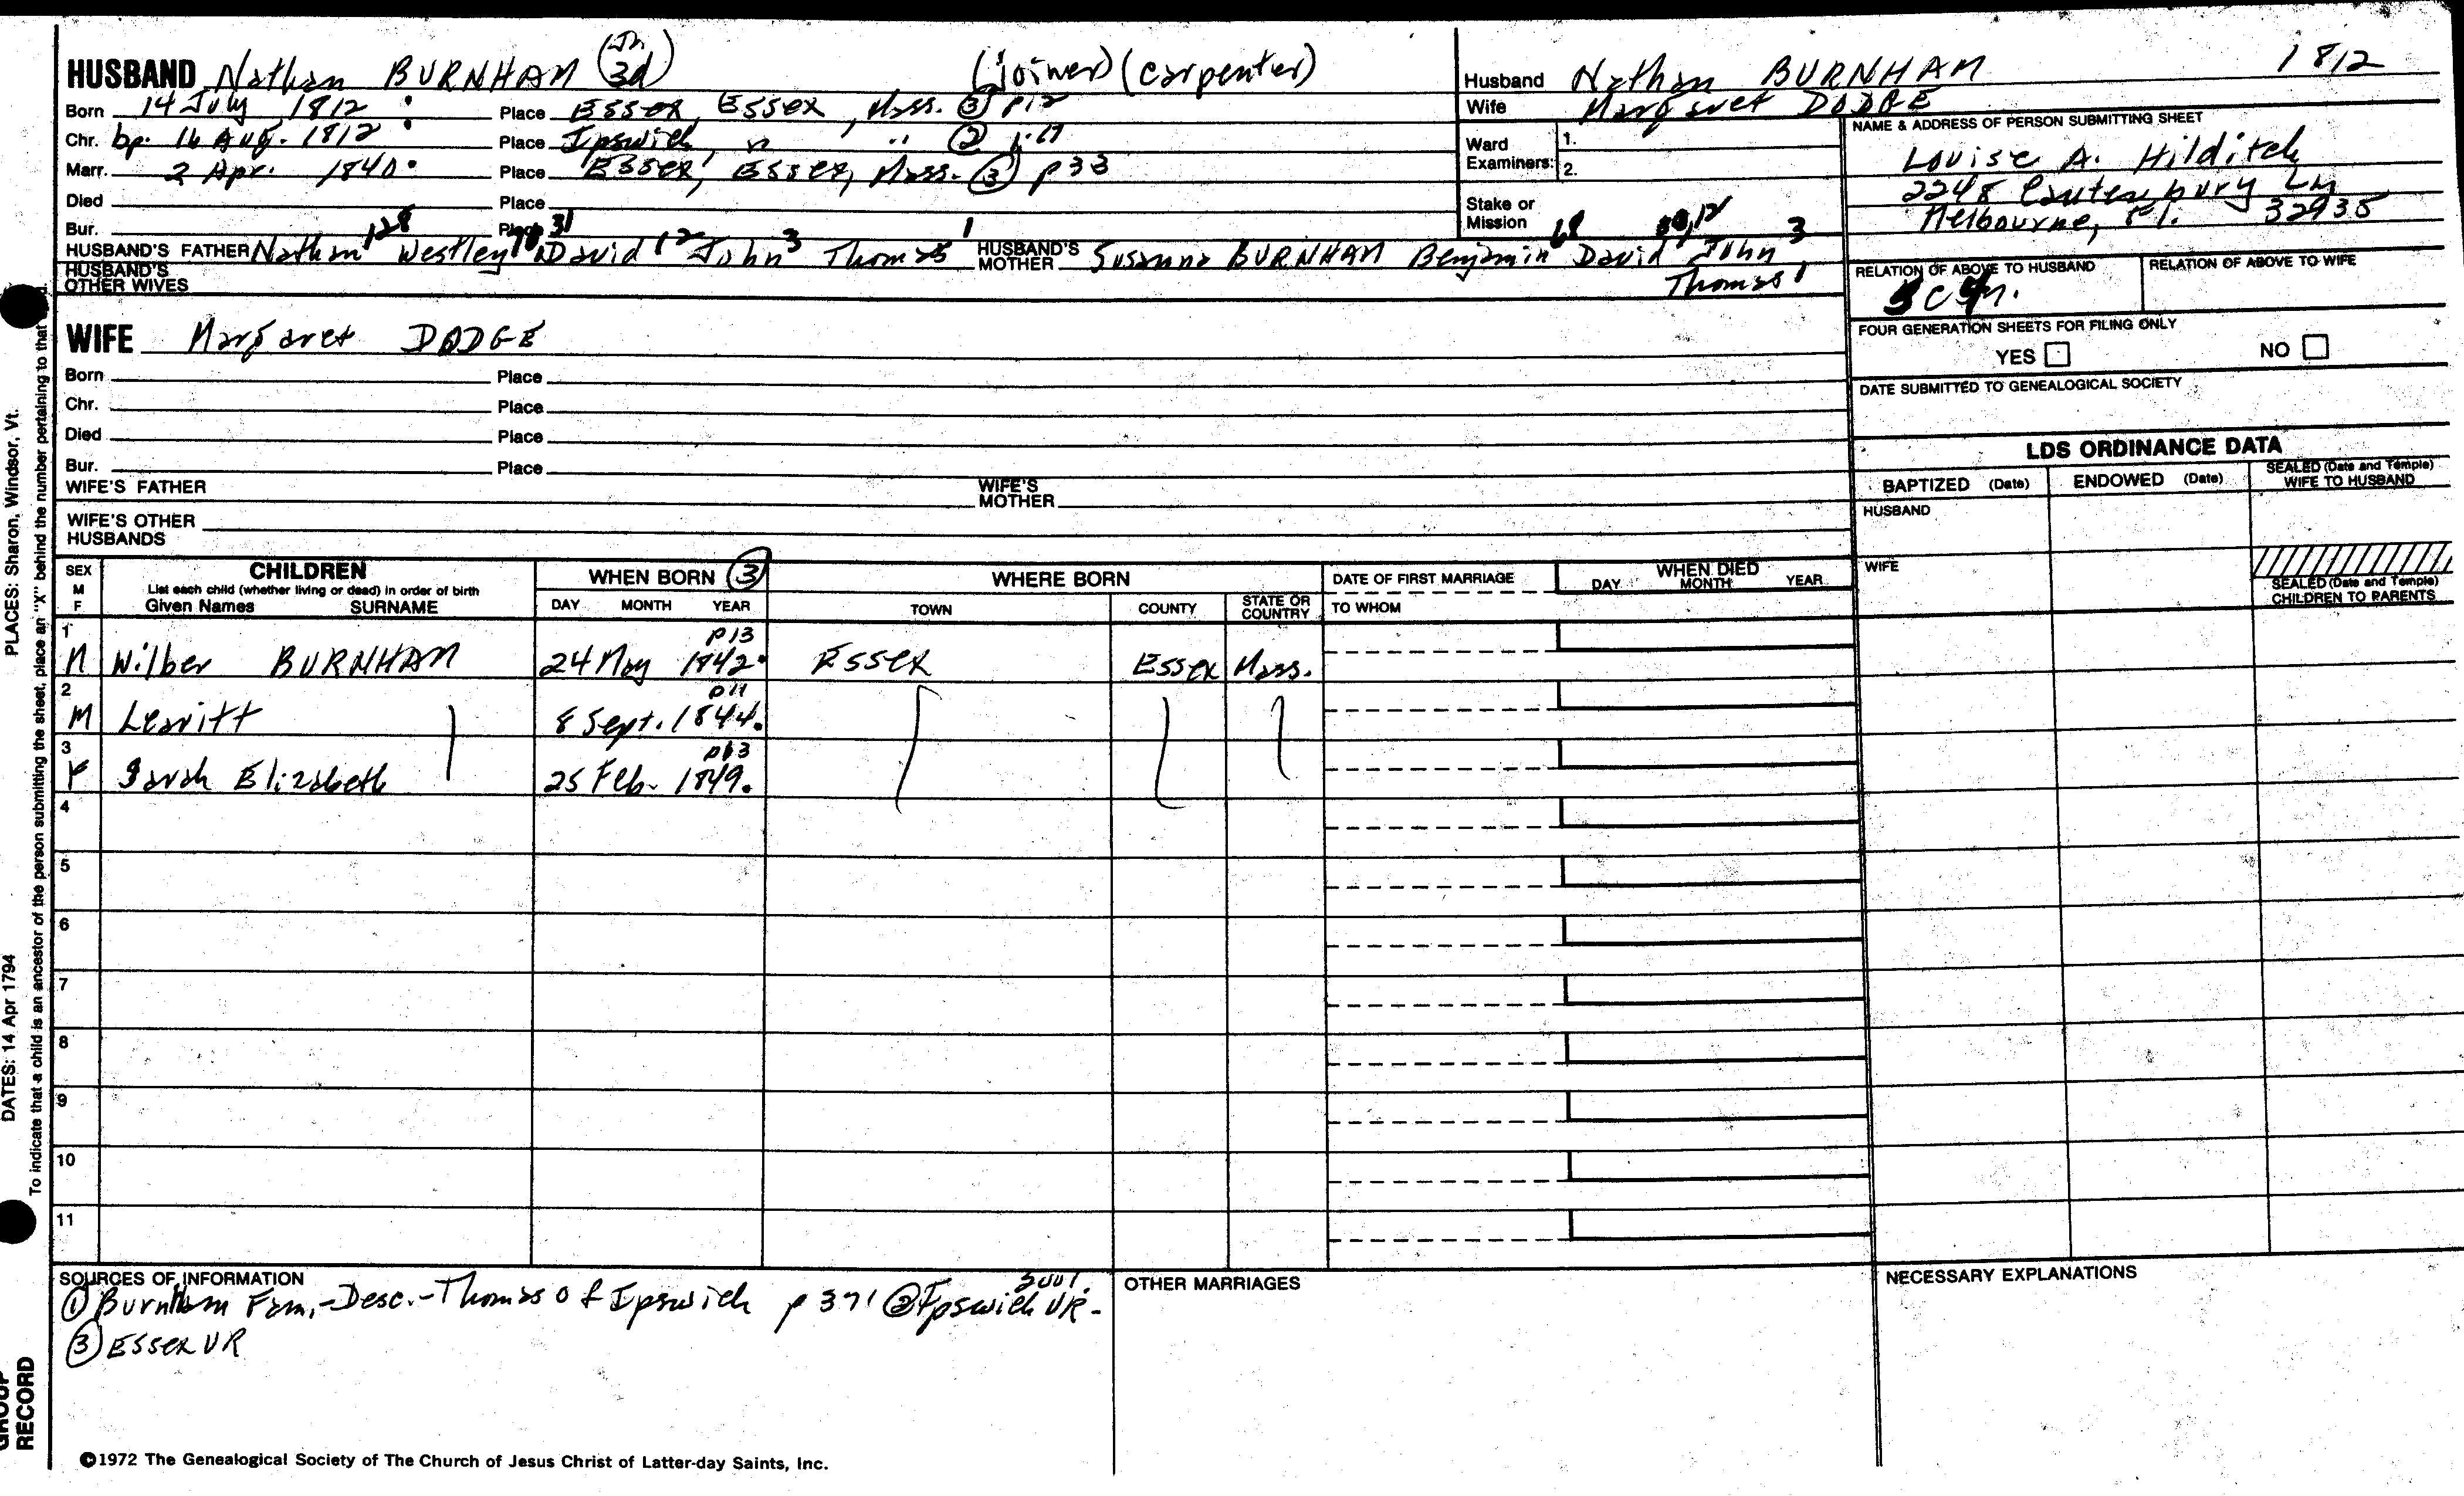 HUSBAND Nathan BURNHAM (Jr. 3d) (joiner) (carpenter)
Born 14 July 1812 Place Essex, Essex, Mass. ③ p12
Chr. bp. 16 Aug. 1812 Place Ipswich, " " ②
Marr. 2 Apr. 1840 Place Essex, Essex, Mass. ③ p33
Died Place
Bur. Place
HUSBAND'S FATHER Nathan 128 Westley David 12 John 3 Thomas 1 HUSBAND'S MOTHER Susanna BURNHAM Benjamin David 12 John 3
Thomas 1
HUSBAND'S OTHER WIVES
Husband Nathan BURNHAM 1812
Wife Margaret DODGE
Ward Examiners: 1.
2.
Stake or Mission
NAME & ADDRESS OF PERSON SUBMITTING SHEET
Louise A. Hilditch
2248 Canterbury Ln
Melbourne, Fl. 32935
RELATION OF ABOVE TO HUSBAND
RELATION OF ABOVE TO WIFE
FOUR GENERATION SHEETS FOR FILING ONLY
YES NO
DATE SUBMITTED TO GENEALOGICAL SOCIETY
WIFE Margaret DODGE
Born Place
Chr. Place
Died Place
Bur. Place
WIFE'S FATHER WIFE'S MOTHER
WIFE'S OTHER HUSBANDS
LDS ORDINANCE DATA
BAPTIZED (Date) ENDOWED (Date) SEALED (Date and Temple) WIFE TO HUSBAND
HUSBAND
WIFE
SEALED (Date and Temple) CHILDREN TO PARENTS
SEX M F
CHILDREN
List each child (whether living or dead) in order of birth
Given Names SURNAME
WHEN BORN ③
DAY MONTH YEAR
WHERE BORN
TOWN COUNTY STATE OR COUNTRY
DATE OF FIRST MARRIAGE
TO WHOM
WHEN DIED
DAY MONTH YEAR
p13
1 M Wilber BURNHAM 24 May 1842 Essex Essex Mass.
p11
2 M Leavitt 8 Sept. 1844.
p13
3 F Sarah Elizabeth 25 Feb. 1849.
4
5
6
7
8
9
10
11
SOURCES OF INFORMATION
① Burnham Fam.-Desc.-Thomas of Ipswich p 371 ② Ipswich VR-
③ Essex VR
OTHER MARRIAGES
NECESSARY EXPLANATIONS
©1972 The Genealogical Society of The Church of Jesus Christ of Latter-day Saints, Inc.
PLACES: Sharon, Windsor, Vt.
DATES: 14 Apr 1794
To indicate that a child is an ancestor of the person submitting the sheet, place an "X" behind the number pertaining to that
GROUP
RECORD